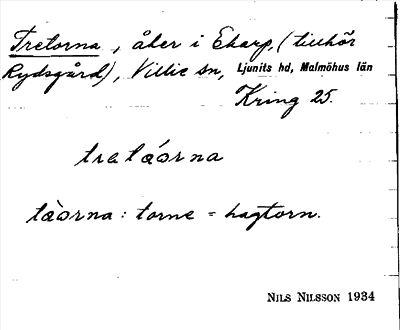 Tretorna, åker i Ekarp, (tillhör
Rydsgård), Villie sn, Ljunits hd, Malmöhus län
Kring 25.
tretǻorna
tà̊orna : torne = hagtorn.
NILS NILSSON 1934